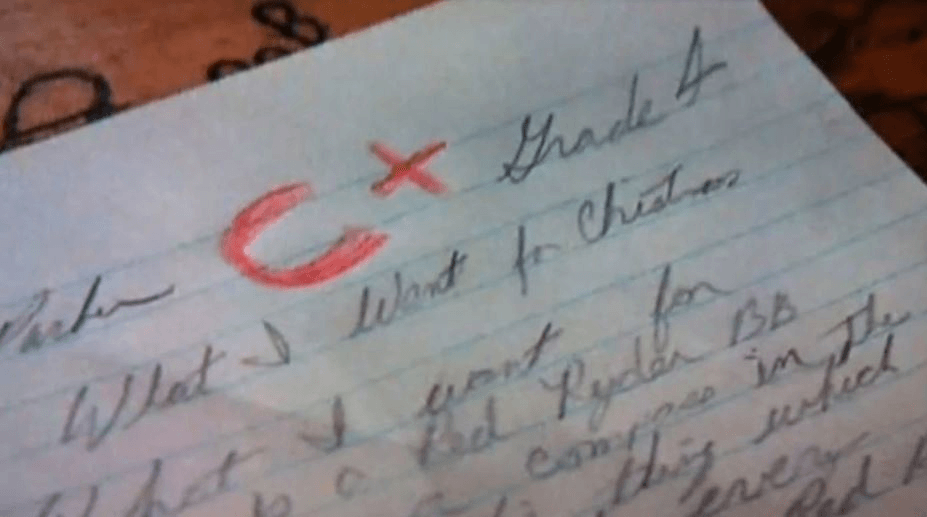 Parker C+ Grade 4
What I Want for Christmas
What I want for
is a Red Ryder BB
a compass in the
thing which
Red